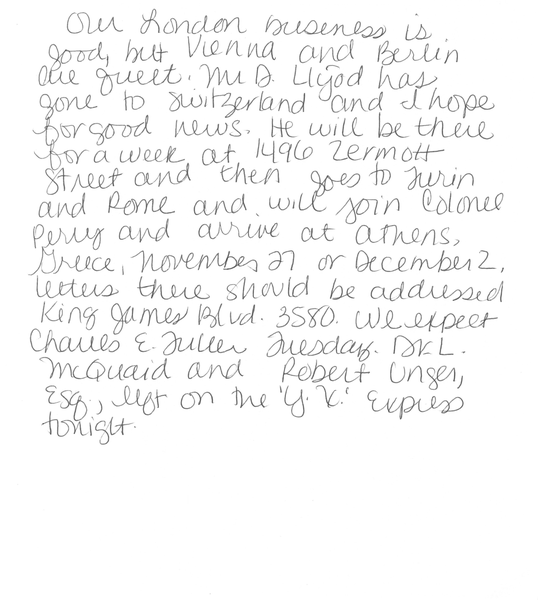 Our London business is
good, but Vienna and Berlin
are quiet. Mr. D. Llyod has
gone to Switzerland and I hope
for good news. He will be there
for a week at 1496 Zermott
Street and then goes to Turin
and Rome and will join Colonel
Perry and arrive at Athens,
Greece, November 27 or December 2.
Letters there should be addressed
King James Blvd. 3580. We expect
Charles E. Fuller Tuesday. Dr. L.
McQuaid and Robert Unger,
Esq., left on the 'Y. X.' Express
tonight.